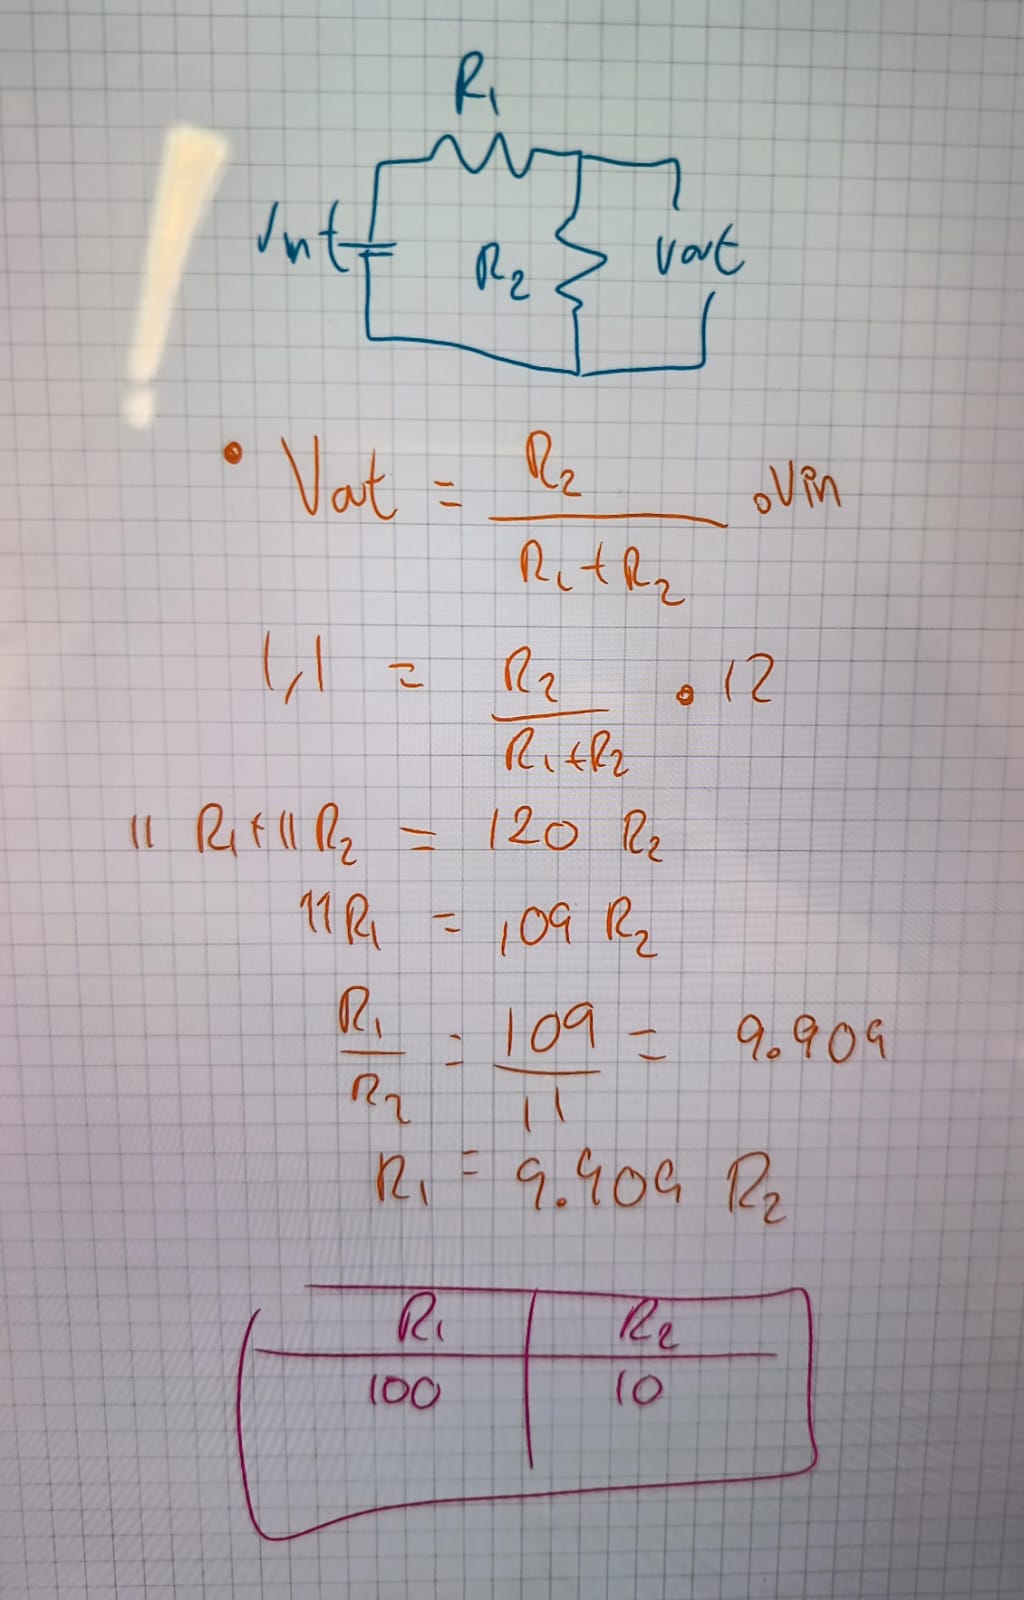 R₁
Vint
R₂
Vout
• Vout = R₂ / R₁ + R₂ . Vin
1,1 = R₂ / R₁ + R₂ • 12
11 R₁ + 11 R₂ = 120 R₂
11R₁ = 109 R₂
R₁ / R₂ = 109 / 11 = 9.909
R₁ = 9.909 R₂
R₁ R₂
100 10